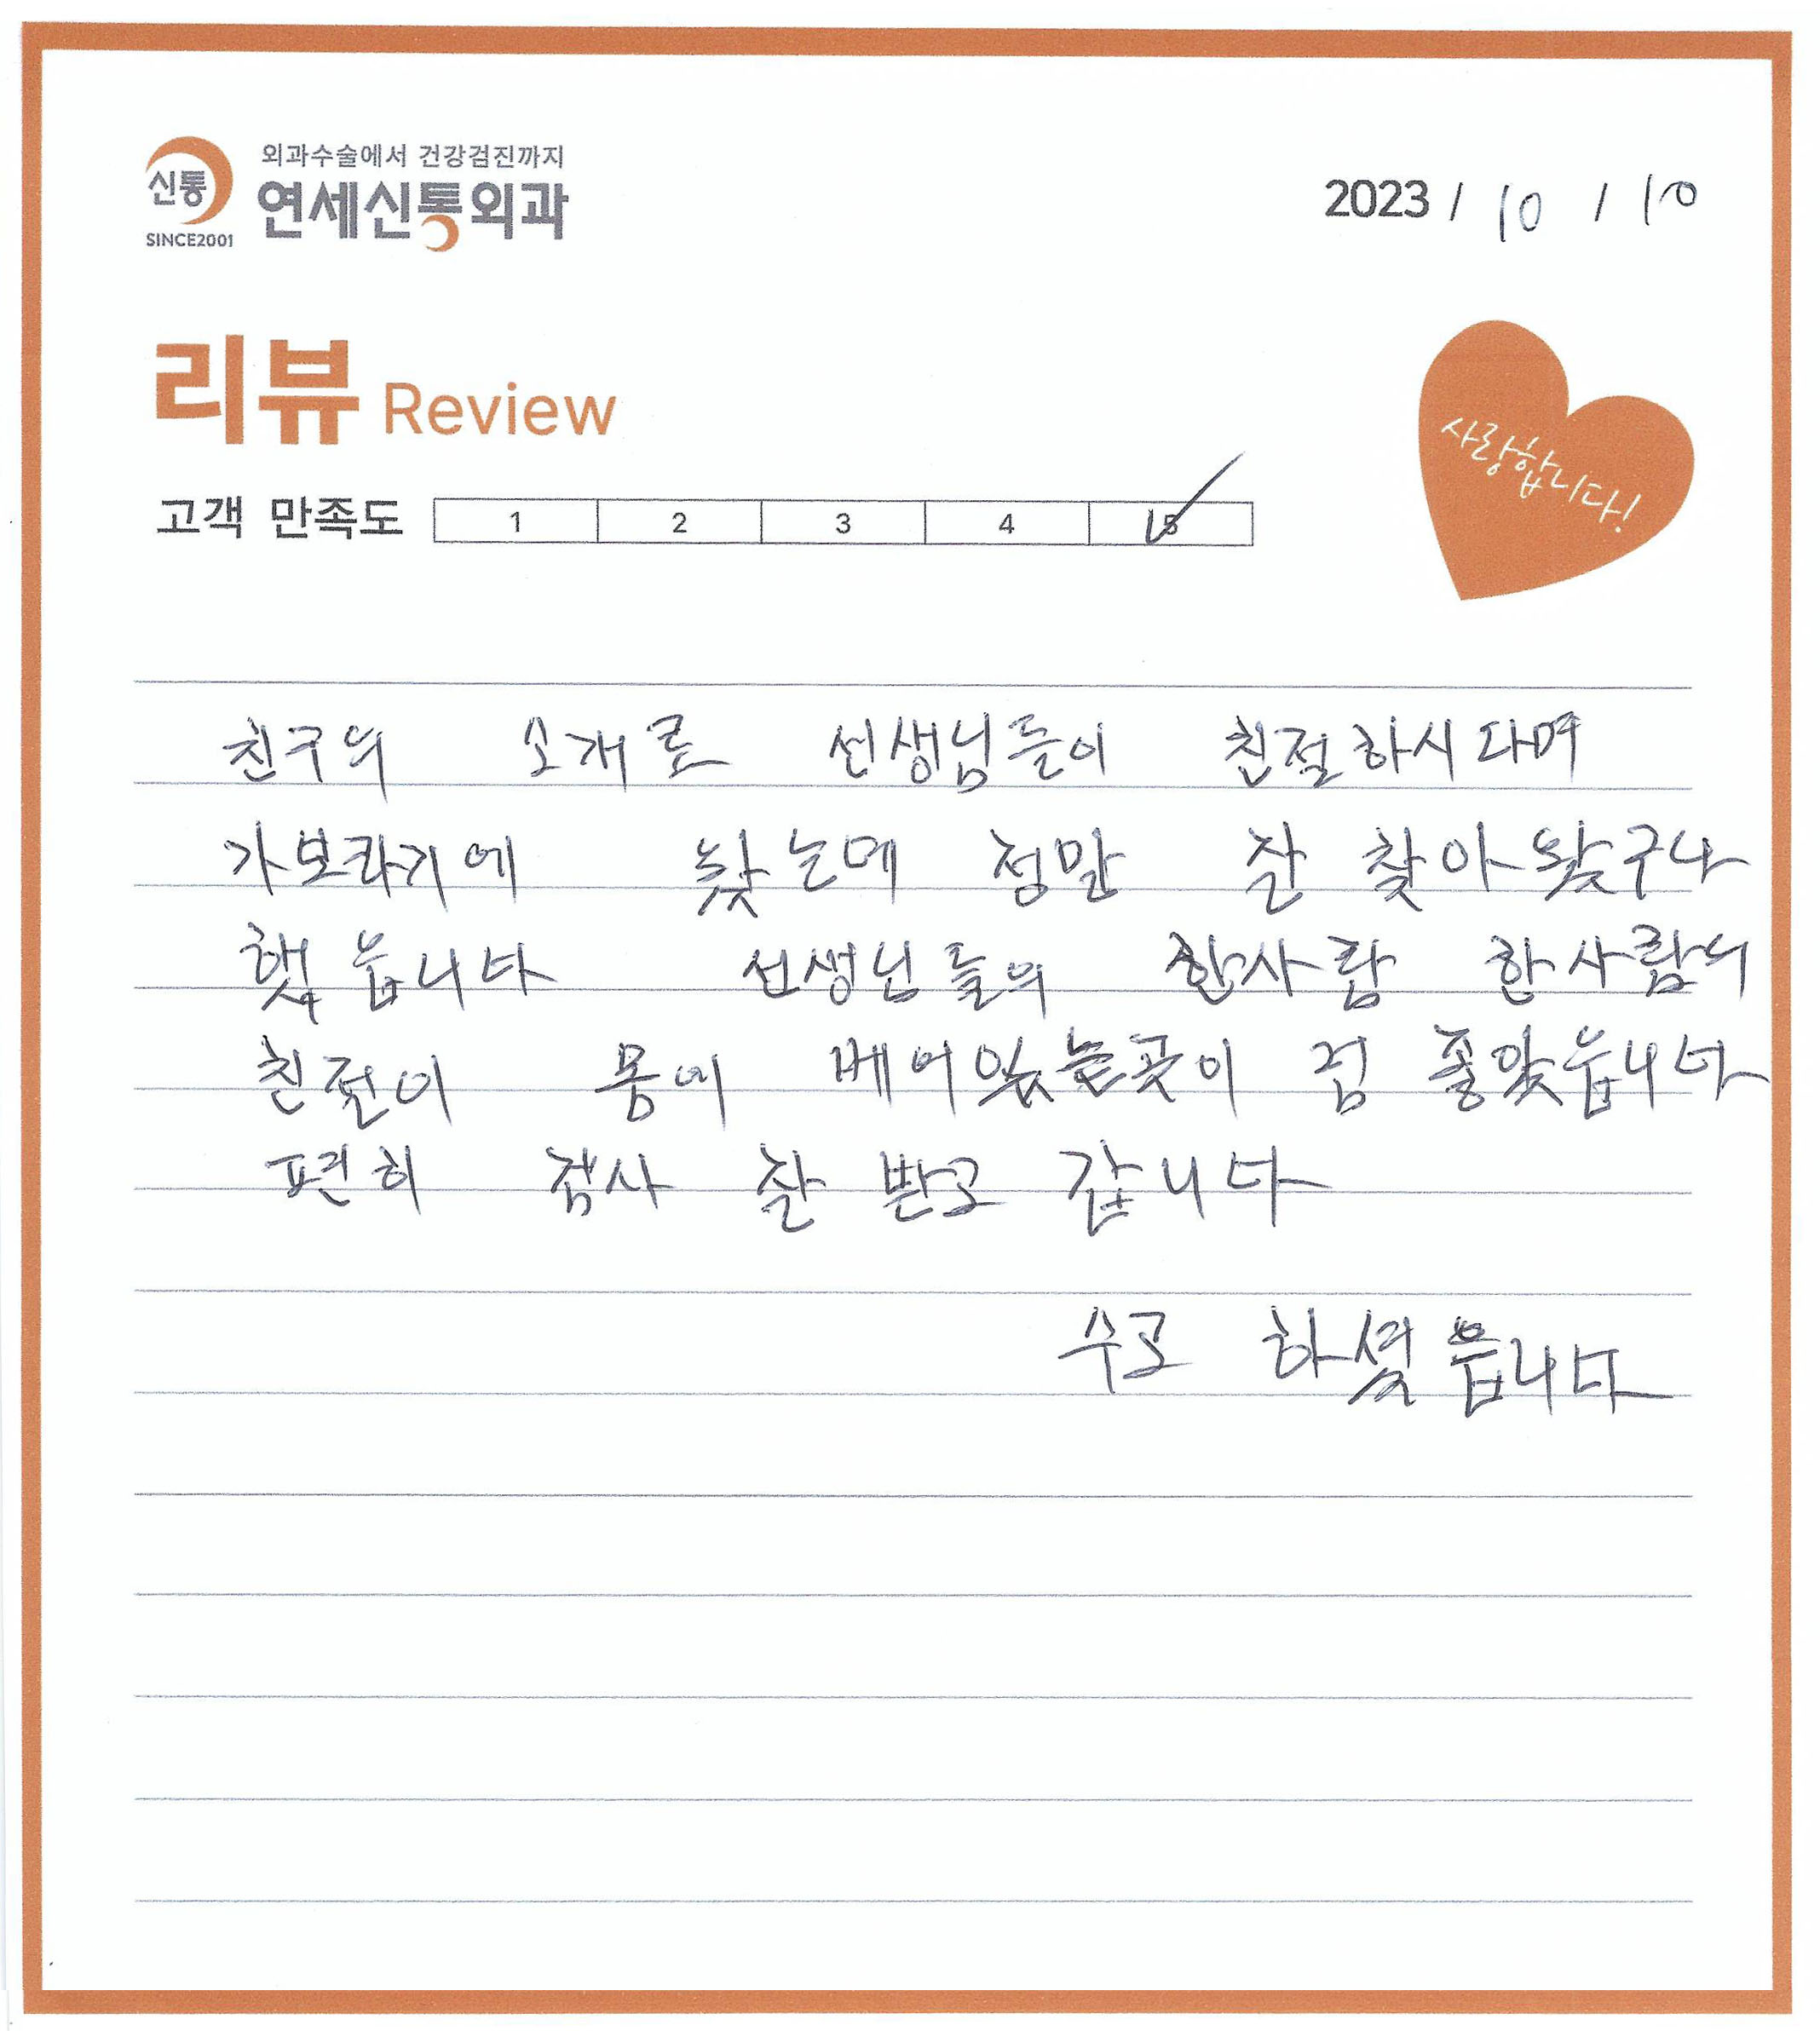 신통
SINCE2001
외과수술에서 건강검진까지
연세신통외과
2023 / 10 / 10
리뷰 Review
사랑합니다!
고객 만족도 1 2 3 4 5
친구의 소개로 선생님들이 친절하시다며
가보라기에 왔는데 정말 잘 찾아왔구나
했읍니다 선생님들의 한사람 한사람의
친절이 몸에 베어있는곳이 점 좋았읍니다
편히 검사 잘 받고 갑니다
수고 하셨읍니다